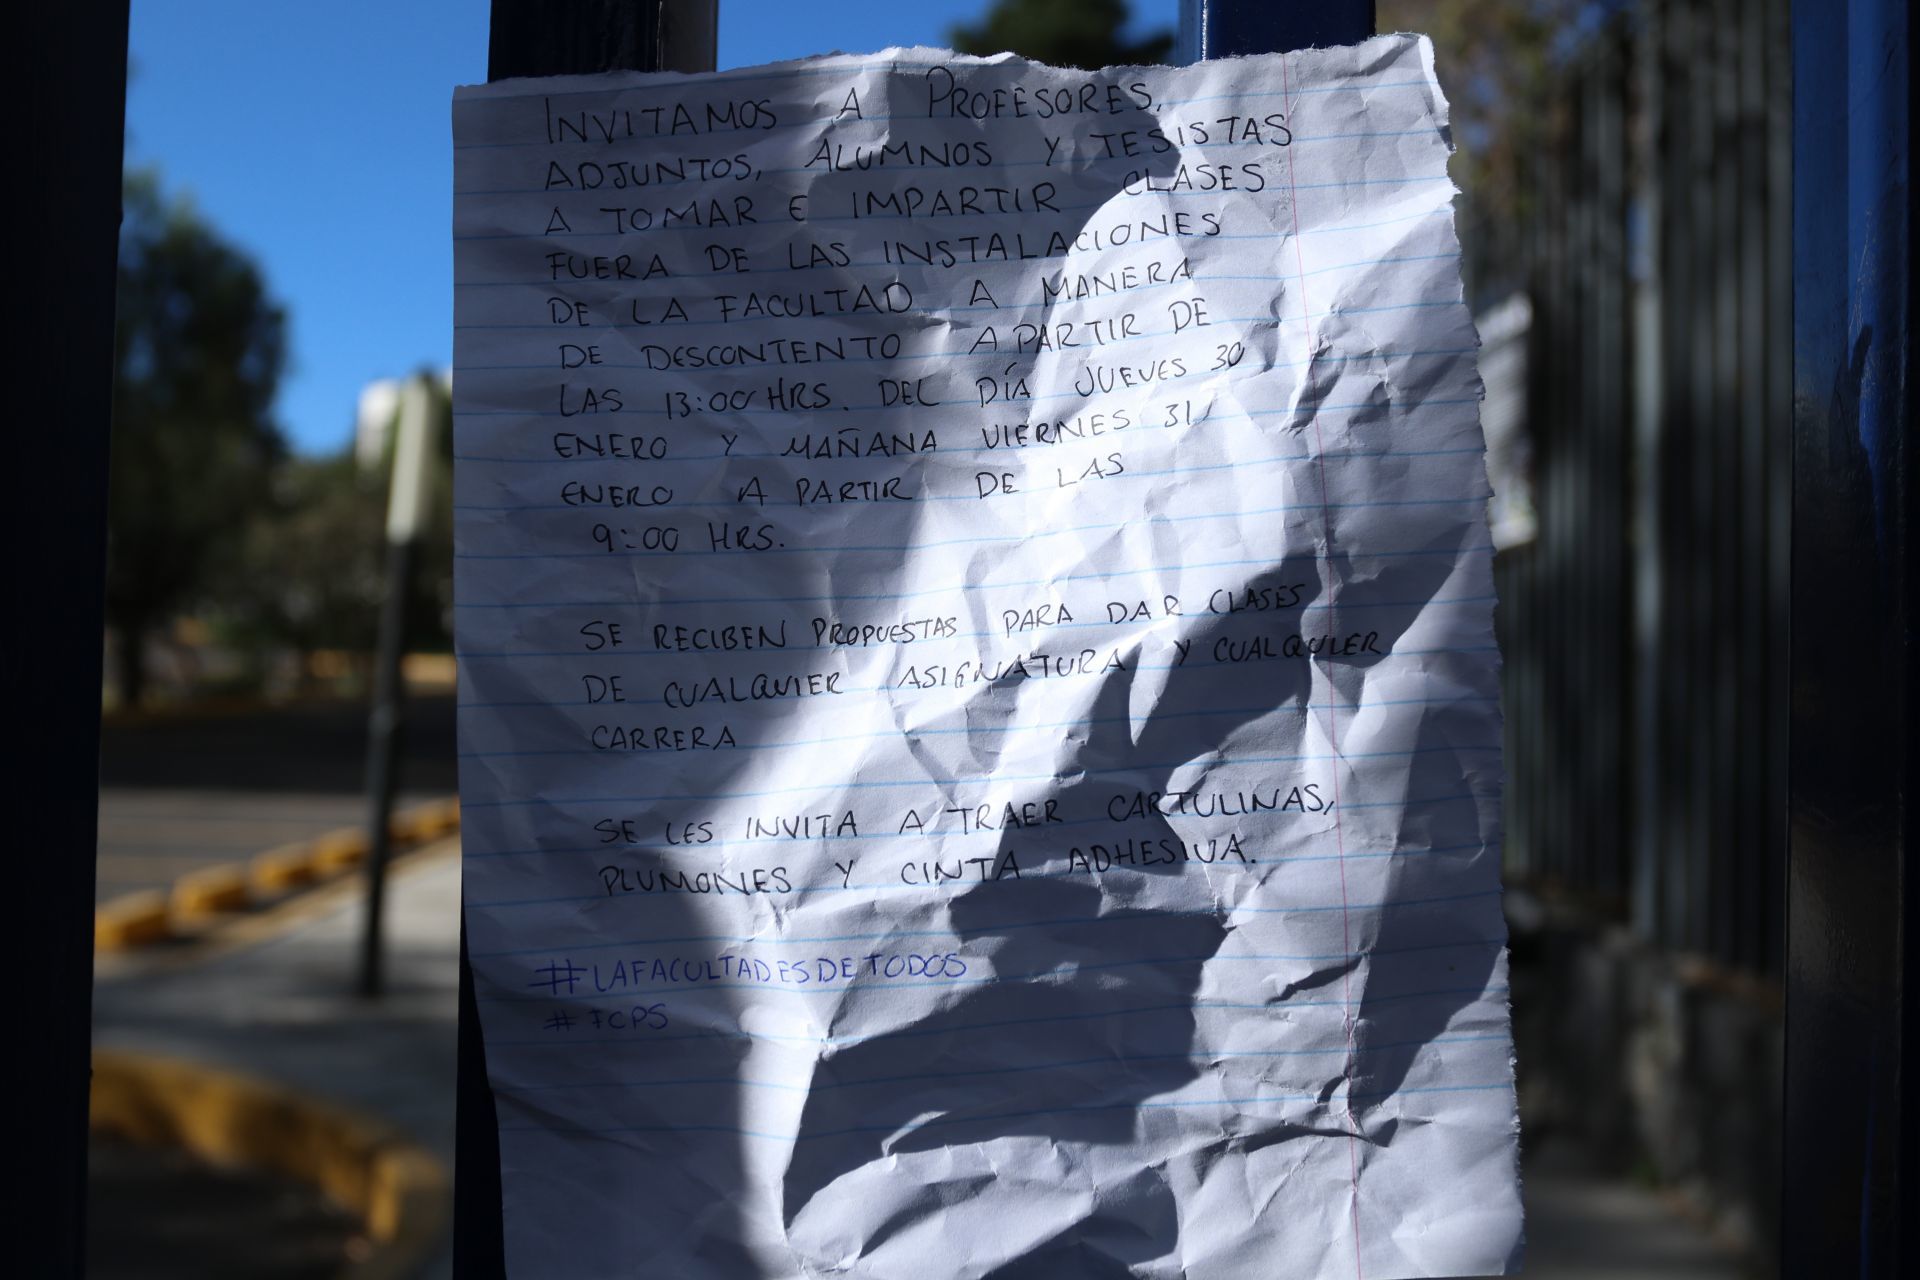 INVITAMOS A PROFESORES,
ADJUNTOS, ALUMNOS Y TESISTAS
A TOMAR E IMPARTIR CLASES
FUERA DE LAS INSTALACIONES
DE LA FACULTAD A MANERA
DE DESCONTENTO A PARTIR DE
LAS 13:00 HRS. DEL DÍA JUEVES 30
ENERO Y MAÑANA VIERNES 31
ENERO A PARTIR DE LAS
9:00 HRS.
SE RECIBEN PROPUESTAS PARA DAR CLASES
DE CUALQUIER ASIGNATURA Y CUALQUIER
CARRERA
SE LES INVITA A TRAER CARTULINAS,
PLUMONES Y CINTA ADHESIVA.
#LAFACULTADESDETODOS
#FCPS